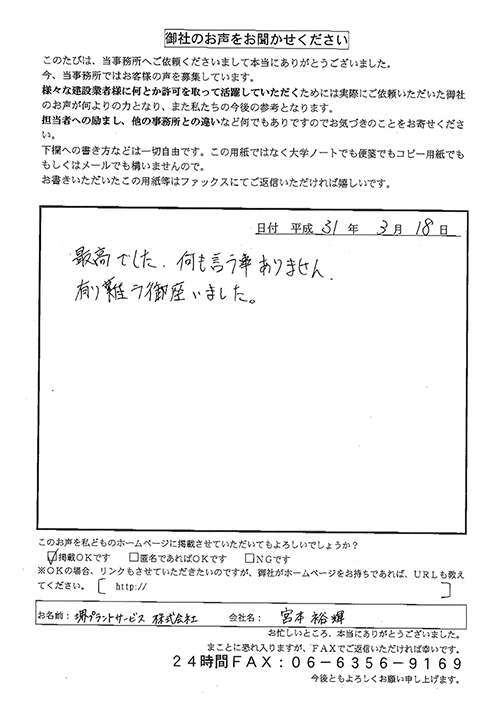 御社のお声をお聞かせください
このたびは、当事務所へご依頼くださいまして本当にありがとうございました。
今、当事務所ではお客様の声を募集しています。
様々な建設業者様に何とか許可を取って活躍していただくためには実際にご依頼いただいた御社
のお声が何よりの力となり、また私たちの今後の参考となります。
担当者への励まし、他の事務所との違いなど何でもありですのでお気づきのことをお寄せくださ
い。
下欄への書き方などは一切自由です。この用紙ではなく大学ノートでも便箋でもコピー用紙でも
もしくはメールでも構いませんので。
お書きいただいたこの用紙等はファックスにてご返信いただければ嬉しいです。
日付 平成 31 年 3 月 18 日
最高でした. 何も言う事ありません.
有り難う御座いました。
このお声を私どものホームページに掲載させていただいてもよろしいでしょうか?
☑掲載OKです □匿名であればOKです □NGです
※OKの場合、リンクもさせていただきたいのですが、御社がホームページをお持ちであれば、URLも教え
てください。 [ http:// ]
お名前: 堺プラントサービス 株式会社 会社名: 宮本 裕輝
お忙しいところ、本当にありがとうございました。
まことに恐れ入りますが、FAXでご返信いただければ幸いです。
24時間FAX:06-6356-9169
今後ともよろしくお願い申し上げます。